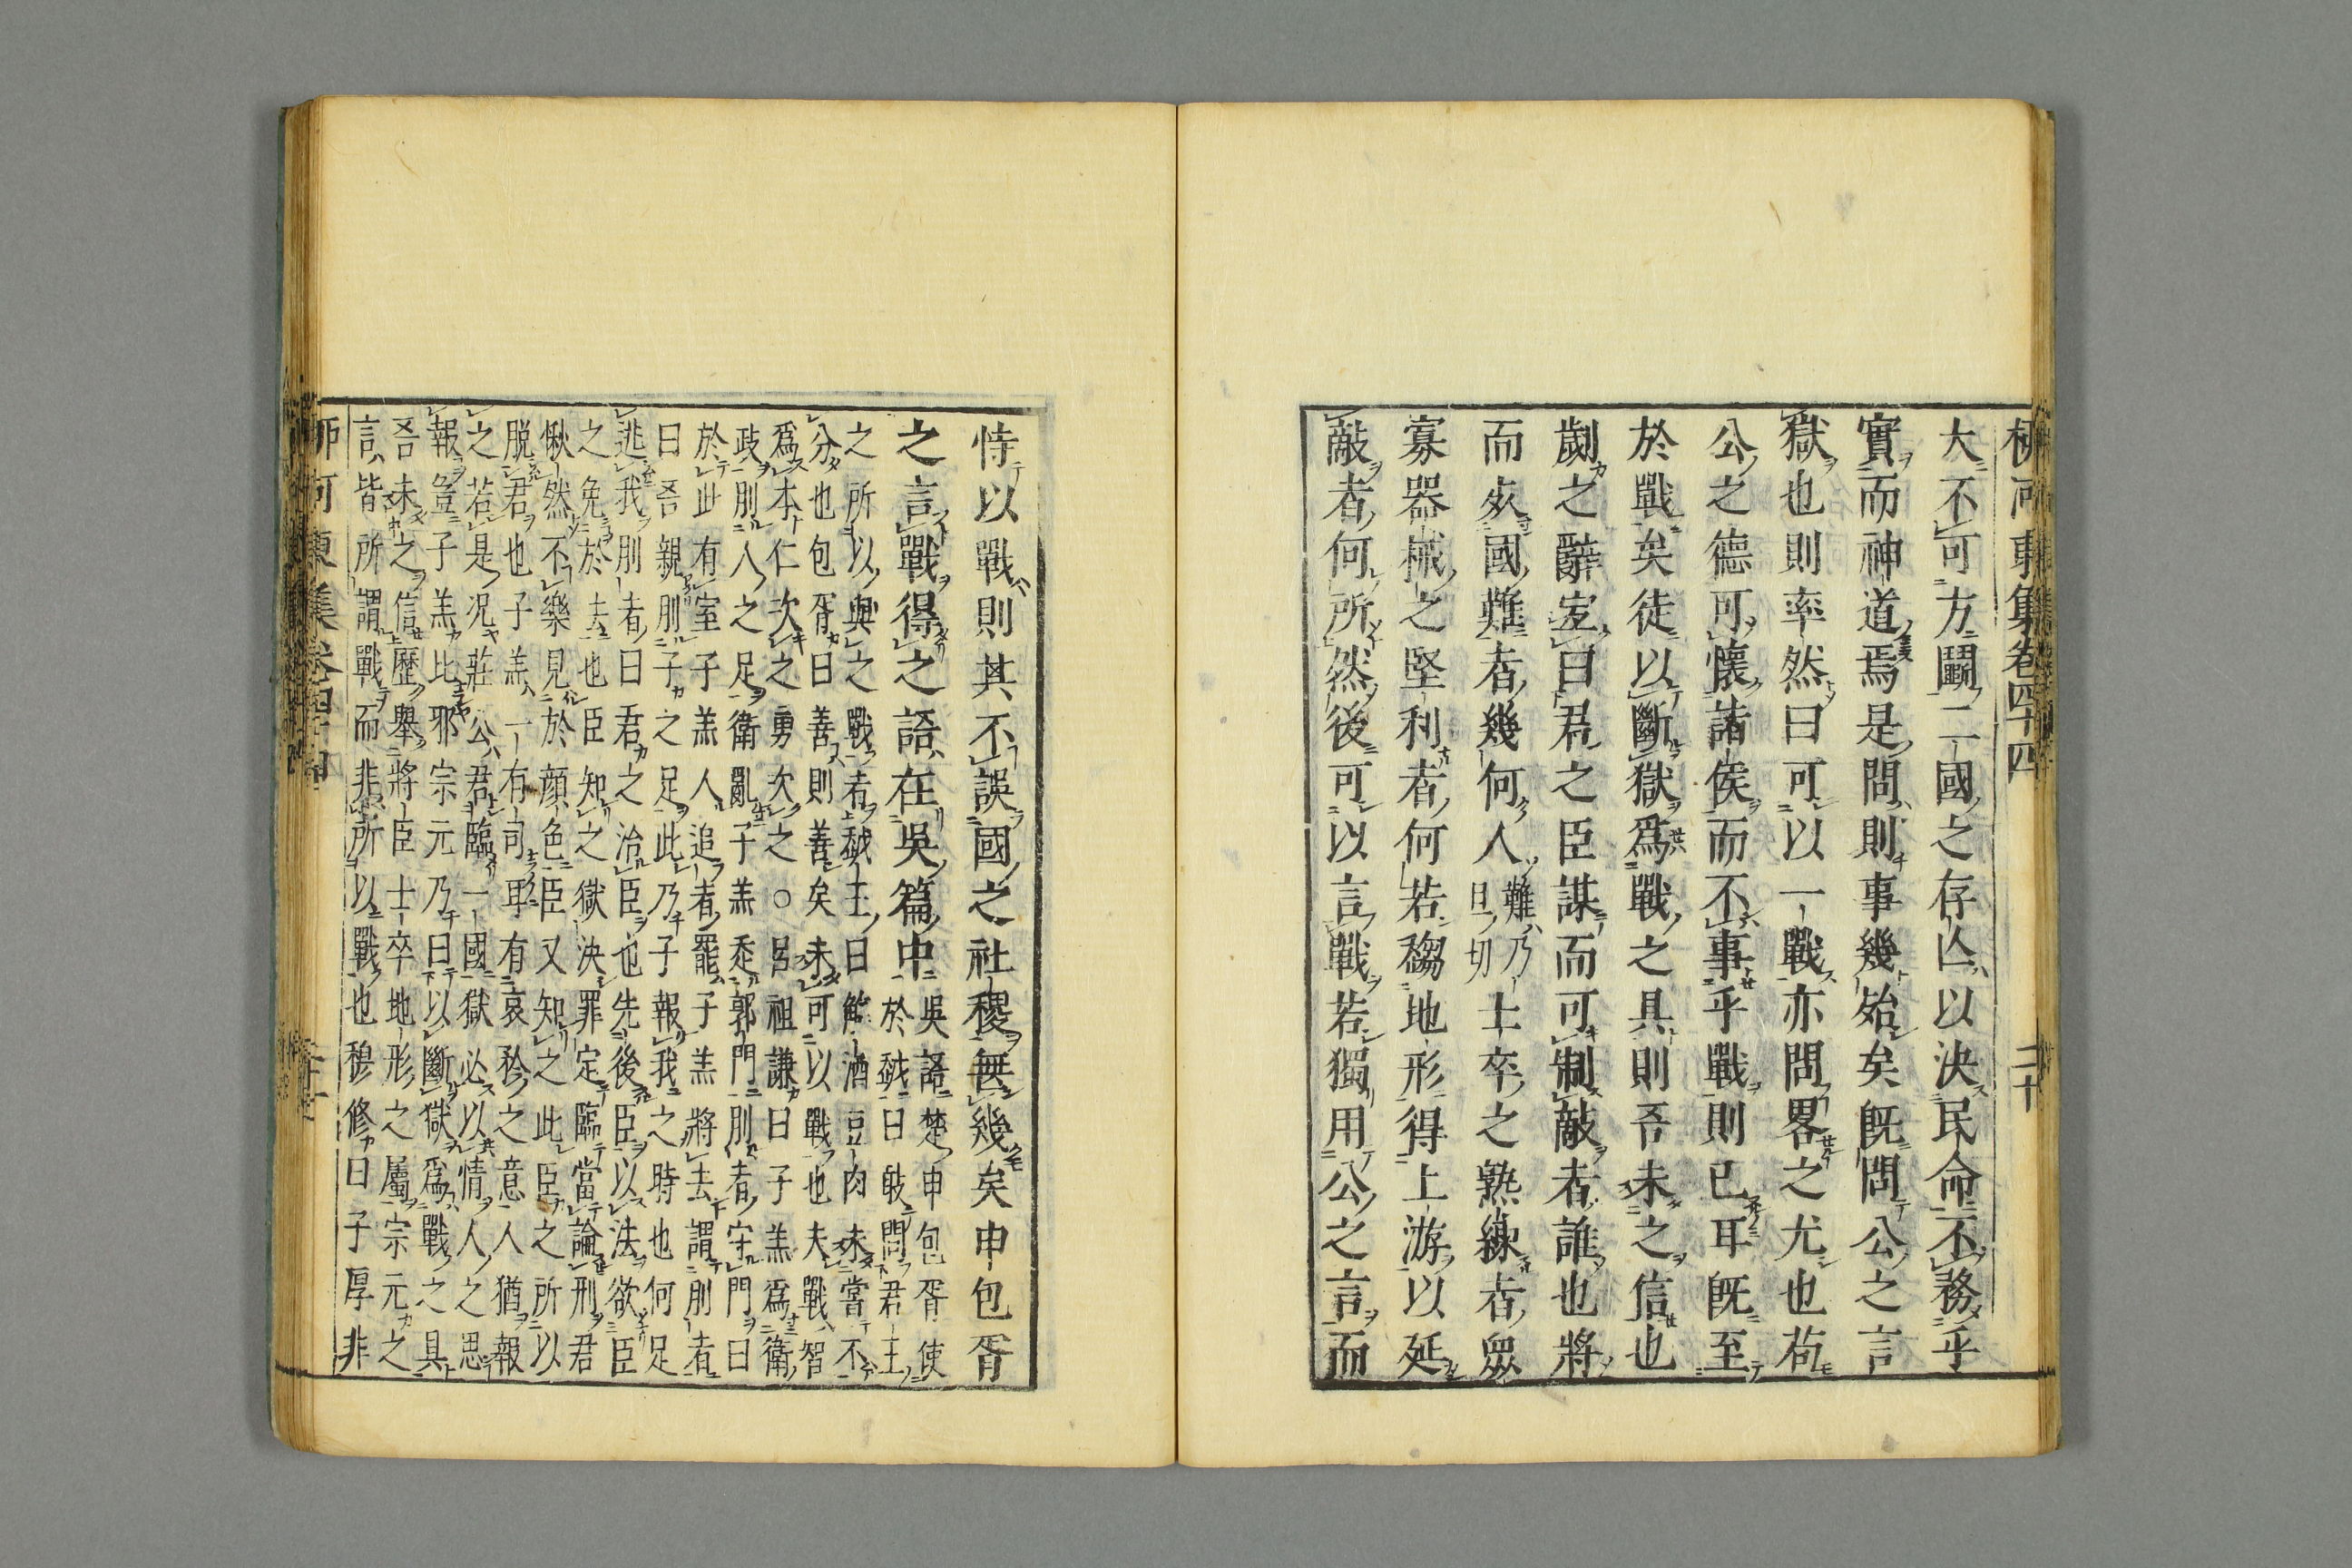 柳河東集卷四十四 二十
大不可方鬭二國之存亾以決民命不務乎
實而神道焉是問則事幾殆矣旣問公之言
獄也則率然曰可以一戰亦問畧之尤也苟
公之德可懷諸侯而不事乎戰則已耳旣至
於戰矣徒以斷獄爲戰之具則吾未之信也
劌之辭宐曰君之臣謀而可制敵者誰也將
而死國難者幾何人難乃旦切士卒之熟練者衆
寡器械之堅利者何若趨地形得上游以延
敵者何所然後可以言戰若獨用公之言而
恃以戰則其不誤國之社稷無幾矣申包胥
之言戰得之語在吳篇中吳語楚申包胥使於越曰敢問君王
之所以與之戰者越王曰觴酒豆肉未嘗不
分也包胥曰善則善矣未可以戰也夫戰智
爲本仁次之勇次之○呂祖謙曰子羔爲衛
政刖人之足衛亂子羔走郭門刖者守門曰
於此有室子羔入追者罷子羔將去謂刖者
曰吾親刖子之足此乃子報我之時也何足
逃我刖者曰君之治臣也先後臣以法欲臣
之免於法也臣知之獄決罪定臨當論刑君
愀然不樂見於顔色臣又知之此臣之所以
脱君也子羔一有司耳有哀矜之意人猶報
之若是况莊公君臨一國獄必以情人之思
報豈子羔比邪宗元乃曰以斷獄爲戰之具
吾未之信歷舉將臣士卒地形之屬宗元之
言皆所謂戰而非所以戰也穆修曰子厚非
柳河東集卷四十四 二十一